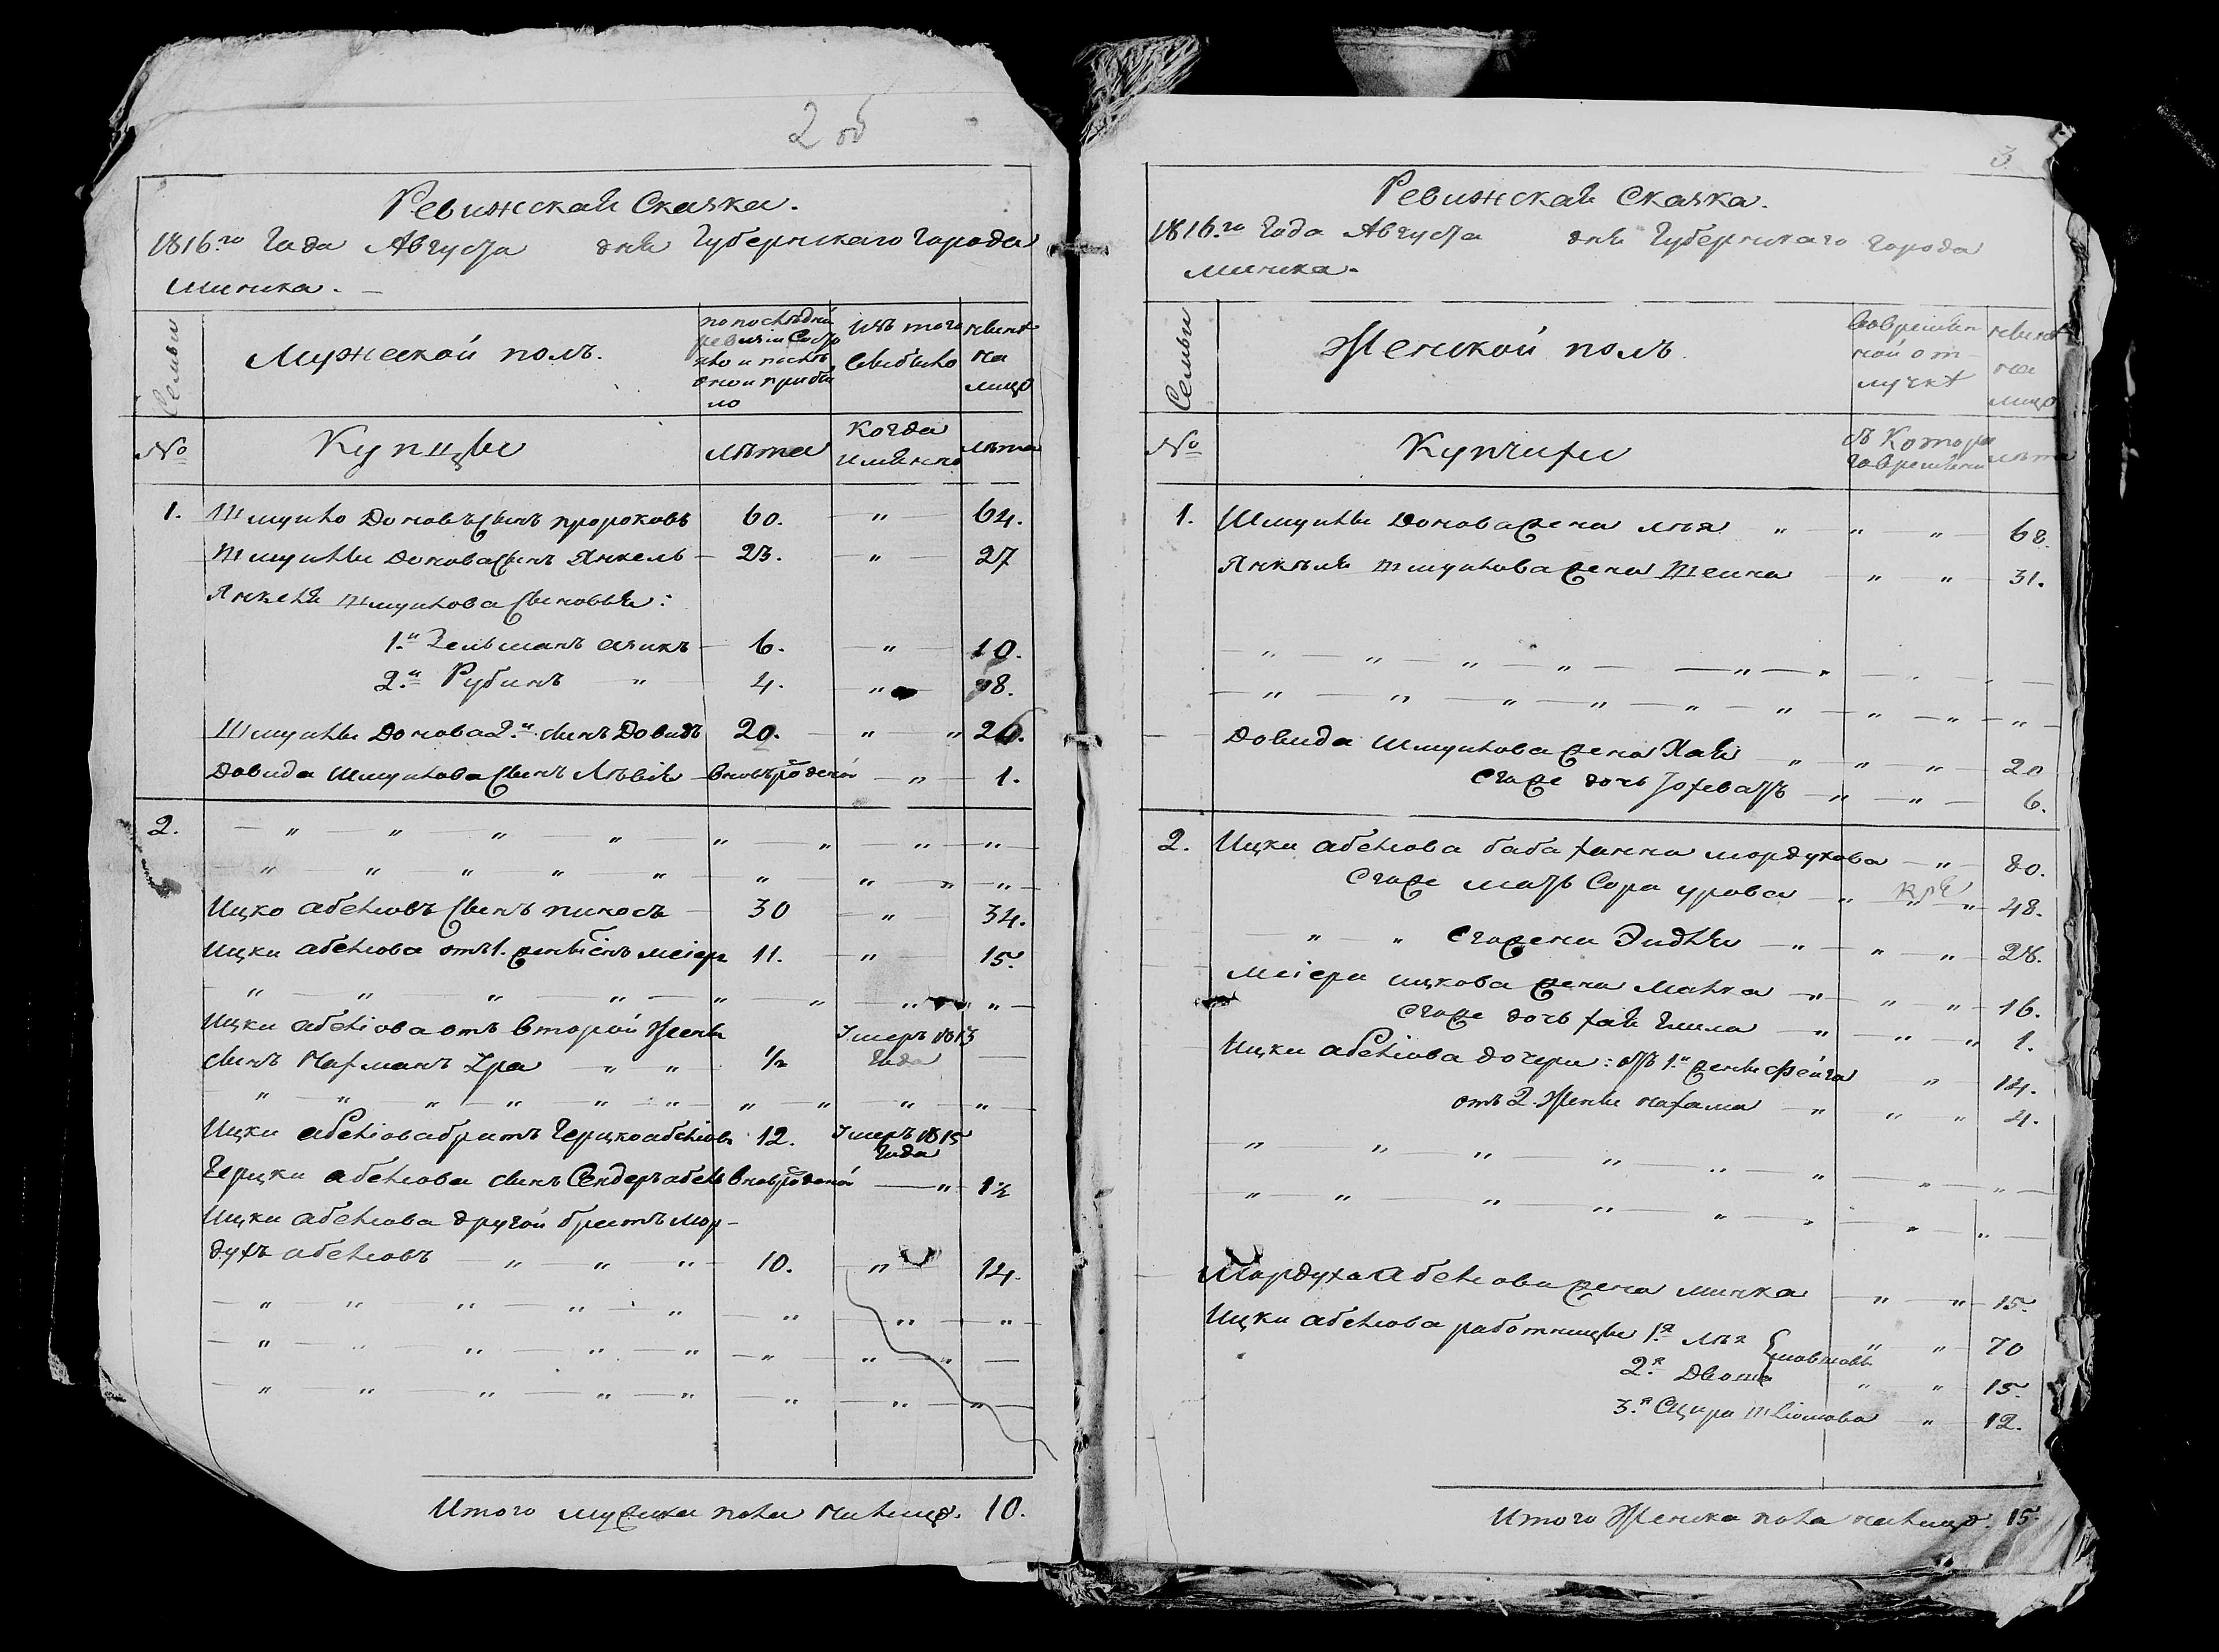 2 об
Ревижская Сказка.
1816.го Года Августа дня Губернскаго Города
Минска.
Семьи
Мужеской полъ.
по последнѣй
ревизіи состо
яло и послѣ
оной прибы
ло
изъ того
выбыло
нынѣ
на
лицо
№
Купцы
лѣта
Когда
имянно
лѣта
1. Шмуйло Доновъ сынъ пророковъ 60. " 64.
Шмуйлы Донова сынъ Янкель 23. " 27
Янкеля Шмуйлова сыновья:
1.й Зельманъ аизикъ 6. " 10.
2.й Рубинъ " 4. " 8.
Шмуйлы Донова 2.й сынъ Довидъ 20. " " 26.
Довида Шмуйлова сынъ Лѣвія вновьрожденой " 1.
2. " " " " " " " "
" " " " " " " " "
Ицко абелиовъ сынъ пинесъ 30 " 34.
Ицки абелиова отъ 1. жены сынъ меіеръ 11. " 15.
" " " " " " " "
Ицки абелиова отъ второй Жены
сынъ Нахманъ Ира " " 1/2 Умеръ 1813
Года
" " " " " " " " " "
Ицки абелиова братъ Герцко абелиовъ 12. Умеръ 1815
Года
Герцки абелиова сынъ Сендеръ абель вновьрожденой " 1 1/2
Ицки абелиова другой братъ мор-
духъ абелиовъ " " " 10. " 14.
" " " " " " " "
" " " " " " " "
" " " " " " " "
Итого мужска пола налицо. 10.
3
Ревижская Сказка.
1816.го Года Августа дня Губернскаго Города
Минска.
Семьи
Женской полъ
во времен
ной от
лучкѣ
нынѣ
на
лицо
№
Купчихи
съ Котора
го времени
лѣта
1. Шмуйлы Донова жена лѣя " " " 68.
Янкеля Шмуйлова жена Шеина " " 31.
" " " " " "
" " " " " " " " "
Довида Шмуйлова жена Хая " " " 20
егоже дочь Іохевать " " 6.
2. Ицки абелиова баба ханна мордухова " 80.
егоже мать Сора урова " " " 48.
" " егожена Эидля " " " 28.
меіера ицкова жена Малка " " " 16.
егоже дочь хая Гишла " " " 1.
Ицки абелиова дочери: отъ 1.й жены фейга " 14.
отъ 2. Жены нахама " " " 4.
" " " " " " " "
" " " " " " " "
Мордуха абелиова жена минка " " 15.
Ицки абелиова работницы 1.я лѣя " " 70
2.я Двоша " " 15.
3.я Сцира " 12.
Итого Женска пола налицо. 15.